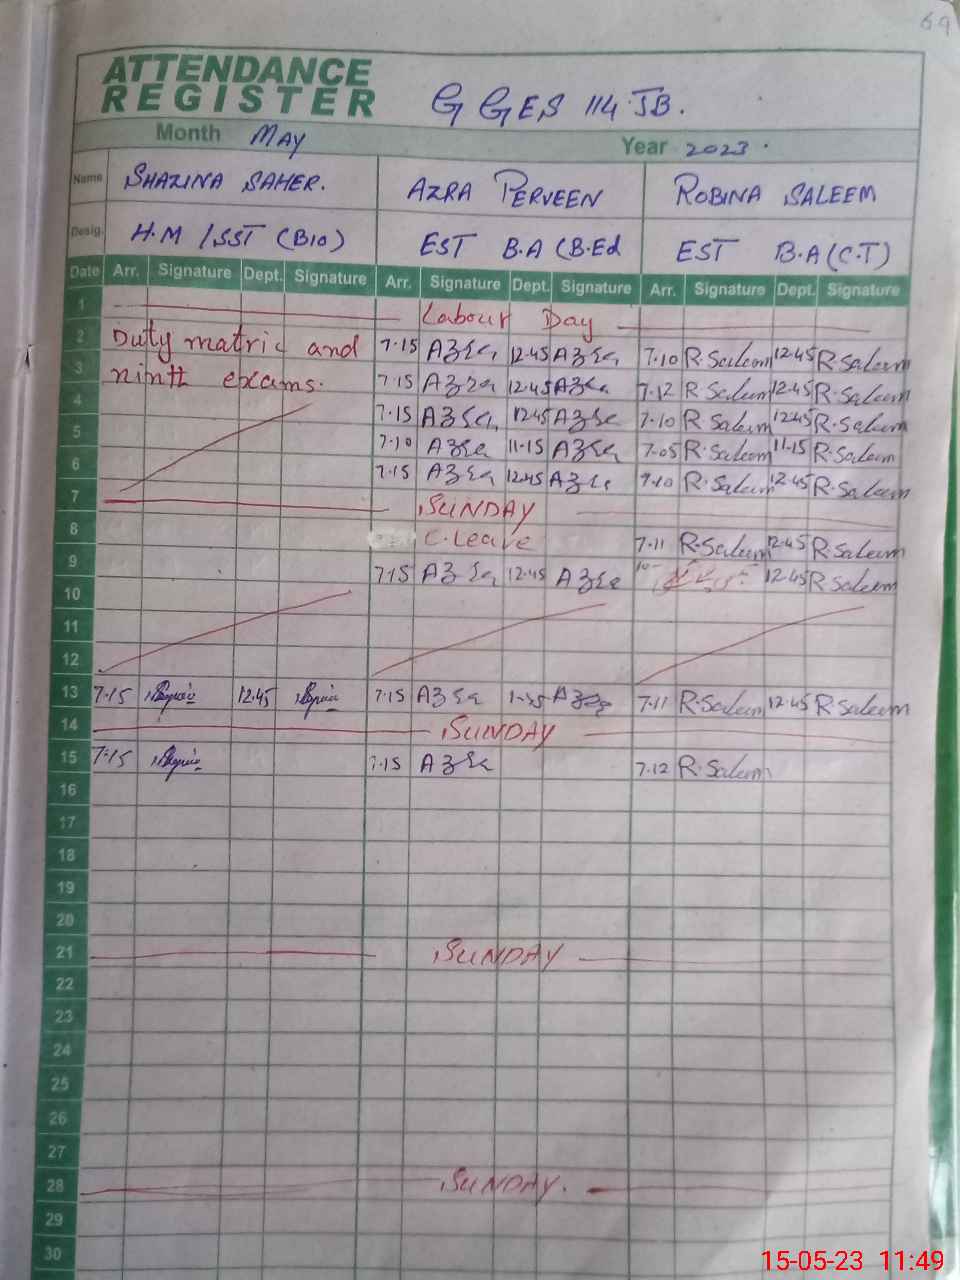 69
ATTENDANCE
REGISTER G GES 114 JB.
Month MAY Year 2023.
Name SHAZINA SAHER. AZRA PERVEEN ROBINA SALEEM
Desig. H.M /SST (BIO) EST B.A (B.Ed EST B.A (C.T)
Date Arr. Signature Dept. Signature Arr. Signature Dept. Signature Arr. Signature Dept. Signature
1 Labour Day
2 Duty matric and 7-15 12.45 7.10 R.Saleem 12.45 R.Saleem
3 ninth exams. 7.15 12.45 7.12 R Saleem 12.45 R.Saleem
4 7.15 12.45 7.10 R Saleem 12.45 R.Saleem
5 7.10 11-15 7.05 R.Saleem 11.15 R.Saleem
6 7.15 12.45 R.Saleem 12.45 R.Saleem
7 SUNDAY
8 C.Leave 7.11 R.Saleem 12.45 R.Saleem
9 7.15 12.45 12.45 R Saleem
10
11
12
13 7.15 12.45 7.15 7.11 R.Saleem 12.45 R Saleem
14 SUNDAY
15 7.15 7.15 7.12 R.Saleem
16
17
18
19
20
21 SUNDAY
22
23
24
25
26
27
28 SUNDAY.
29
30
15-05-23 11:49